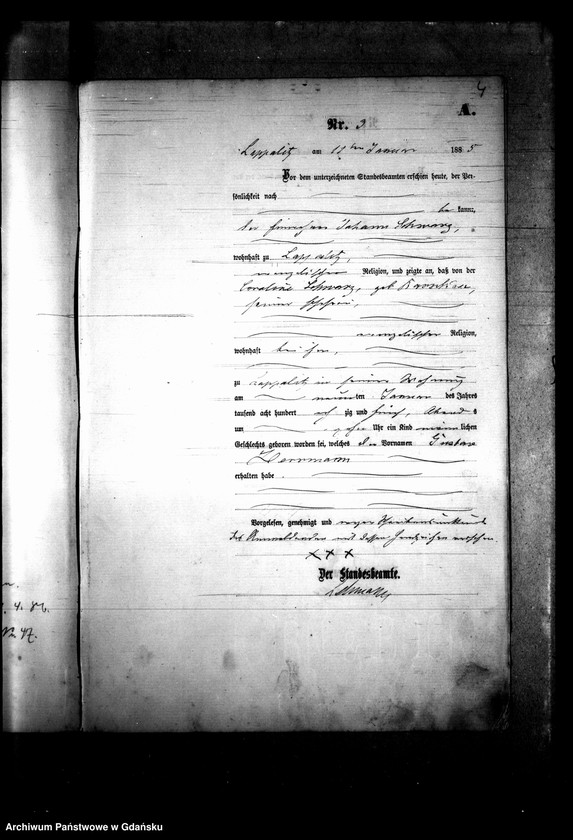 4
A.
Nr. 3
Lappalitz am 11ten Januar 1885
Vor dem unterzeichneten Standesbeamten erschien heute, der Per-
sönlichkeit nach
be kannt,
der Johann Schwarz,
wohnhaft zu Lappalitz,
evangelischer Religion, und zeigte an, daß von der
Caroline Schwarz, geb.
seiner Ehefrau,
evangelischer Religion,
wohnhaft bei ihm,
zu Lappalitz in seiner Wohnung
am neunten Januar des Jahres
tausend acht hundert acht zig und fünf, Abends
um zehn Uhr ein Kind männlichen
Geschlechts geboren worden sei, welches die Vornamen Gustav
Herrmann
erhalten habe.
Vorgelesen, genehmigt und wegen Schreibensunkunde
des Anmeldenden mit dessen Handzeichen versehen.
x x x
Der Standesbeamte.
4. 86.
12. 47.
Archiwum Państwowe w Gdańsku